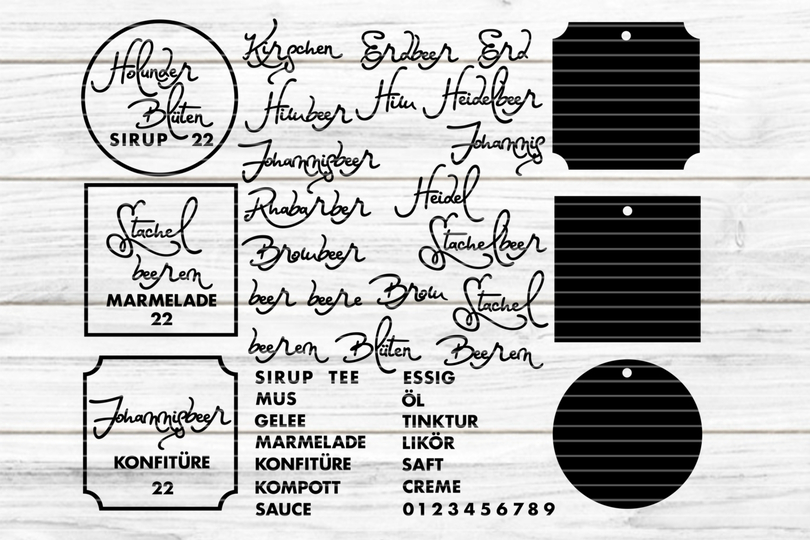 Holunder
Blüten
SIRUP 22
Stachel
beeren
MARMELADE
22
Johannisbeer
KONFITÜRE
22
Kirschen Erdbeer Erd
Himbeer Him Heidelbeer
Johannis
Johannisbeer
Rhabarber Heidel
Brombeer Stachelbeer
beer beere Brom Stachel
beeren Blüten Beeren
SIRUP TEE ESSIG
MUS ÖL
GELEE TINKTUR
MARMELADE LIKÖR
KONFITÜRE SAFT
KOMPOTT CREME
SAUCE 0123456789